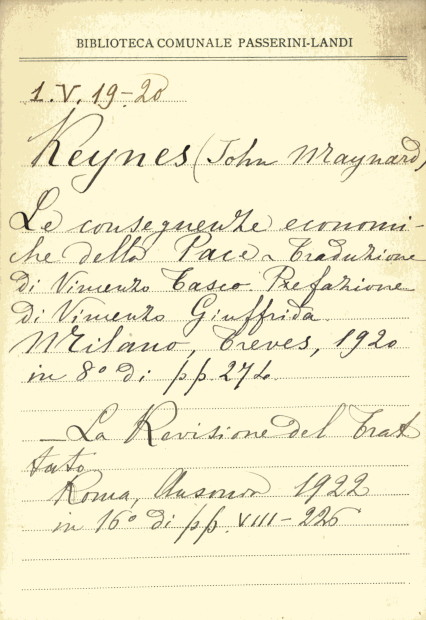 BIBLIOTECA COMUNALE PASSERINI-LANDI
1.V.19-20
Keynes (John Maynard)
Le conseguenze economi-
che della Pace - Traduzione
di Vincenzo Tasco. Prefazione
di Vincenzo Giuffrida.
Milano, Treves, 1920
in 8° di pp. 274.
— La Revisione del Trat
tato
Roma, Ausonia 1922
in 16° di pp. VIII-226